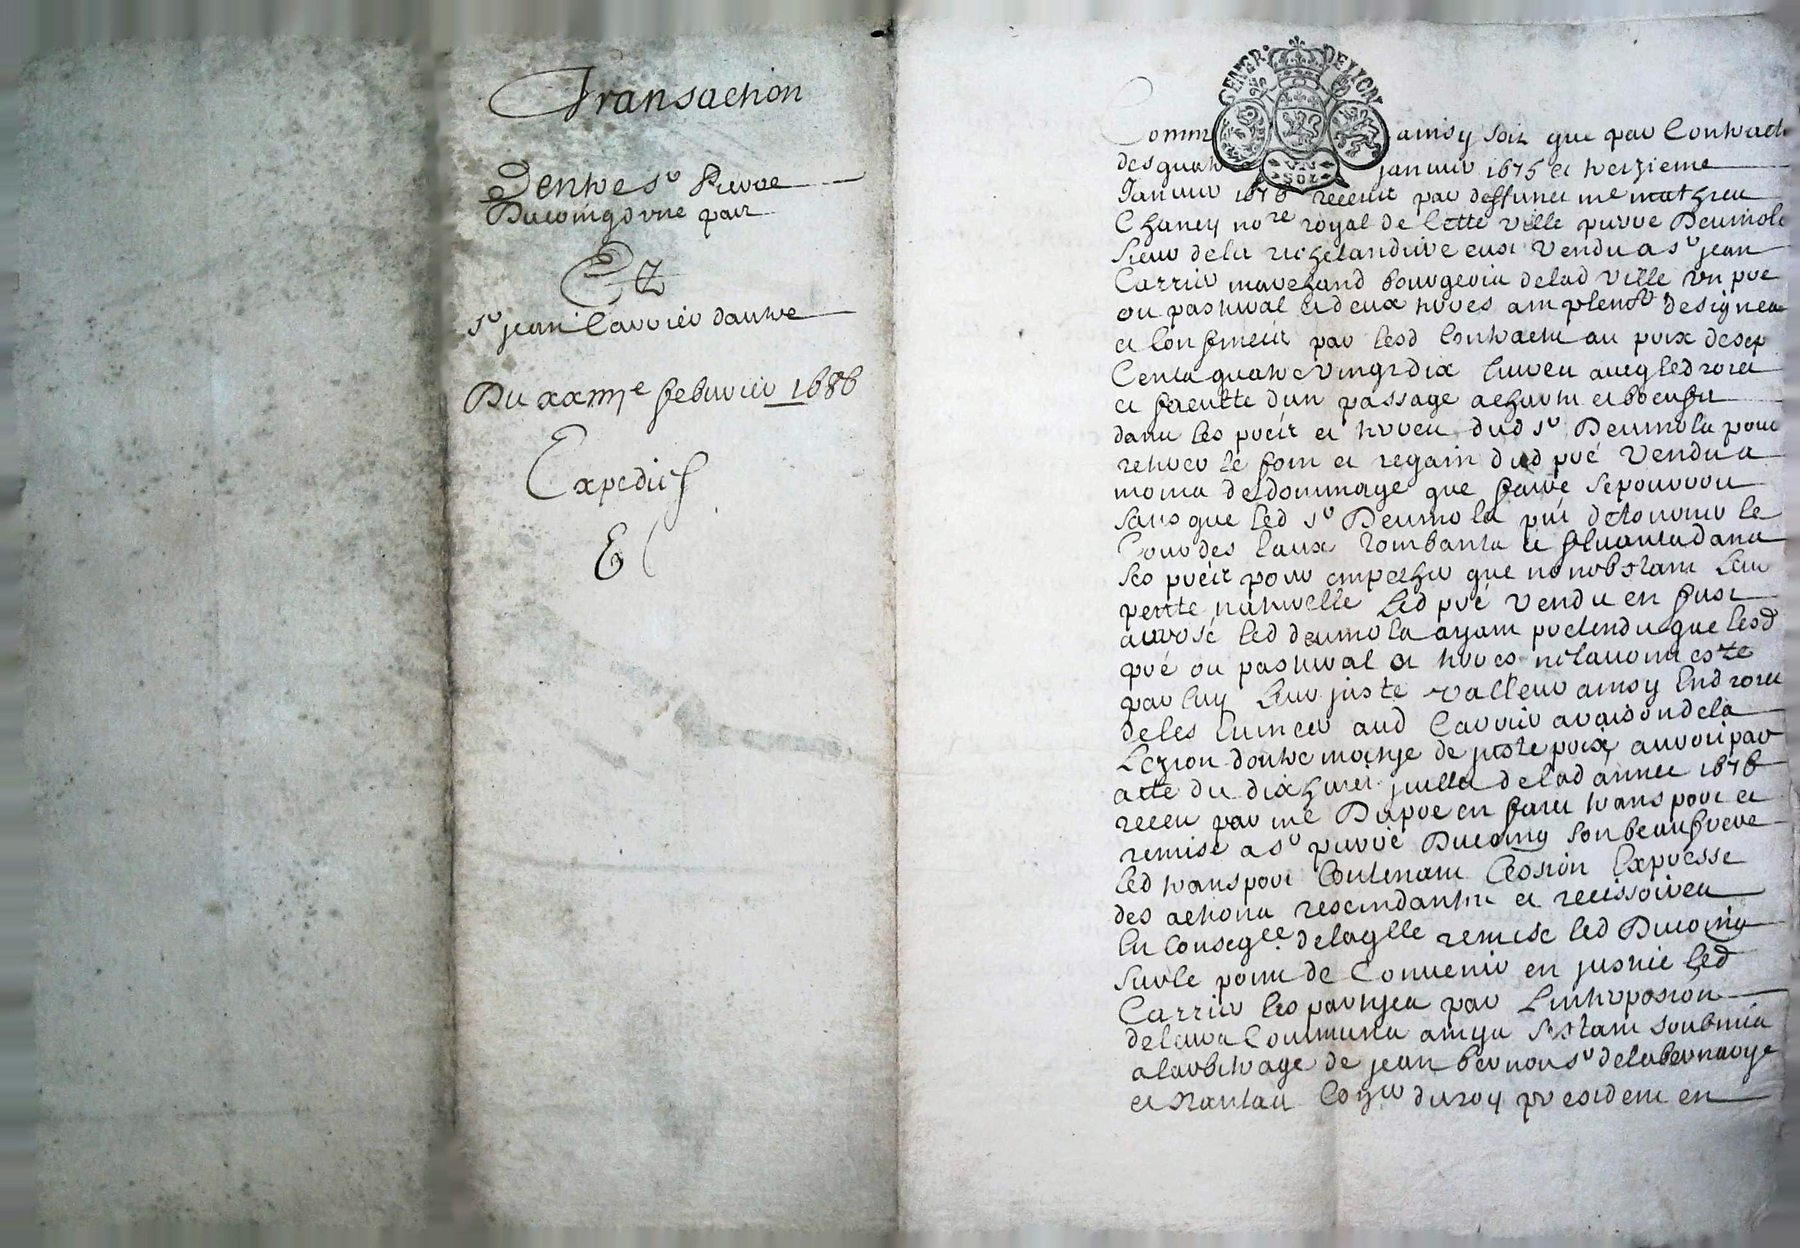 Transaction
Entre sr Pierre
Ducoing d'vne part
Et
sr jean Carrier dautre
Du xxiiije febvrier 1686
Expedief
E
GENER. DE LION
VN
SOL
Comm ainsy soit que par Contract
des quat janvier 1675 et treizieme
Janvier 1676 receus par deffunct me mathieu
Chaney nore royal de Cette ville pierre Deumola
sieur dela richelandiere eust vendu a sr jean
Carrier marchand bourgeois delad ville vn pre
ou pastural et deux terres amplemt designes
et Confines par lesd Contracts au prix de sep
Cents quatre vingt dix livres avecq led droit
et faculte dun passage a chars et boeufs
dans les preis et terres dud sr Deumola pour
retirer le foin et regain dud pré vendu a
moins de dommage que faire se pourroit
sans que led sr Deumola put detourner le
Cours des Eaux tombants et fluants dans
ses preis pour empecher que nonobstant leur
pente naturelle led pré vendu en fust
arrosé led deumola ayant pretendu que lesd
pré ou pastural et terres n'estavoint este
par luy leur juste valleur ainsy Endroit
de les Eumer aud Carrier a raison dela
Lezion doutre moitye de juste prix auroit par
acte du dix huict juillet delad année 1676
receu par me Dupre en faict transport et
remise a sr pierre Ducoing son beau frere
led transport Contenant Cession Expresse
des actions rescindantes et recissoires
En Conseqce delaqlle remise led Ducoing
sur le point de Convenir en justice led
Carrier les parties par L'interposition
de leurs Communs amys s'estant soubmis
a larbitrage de jean bernou sr delabernarye
et Nantas Coner du roy president en